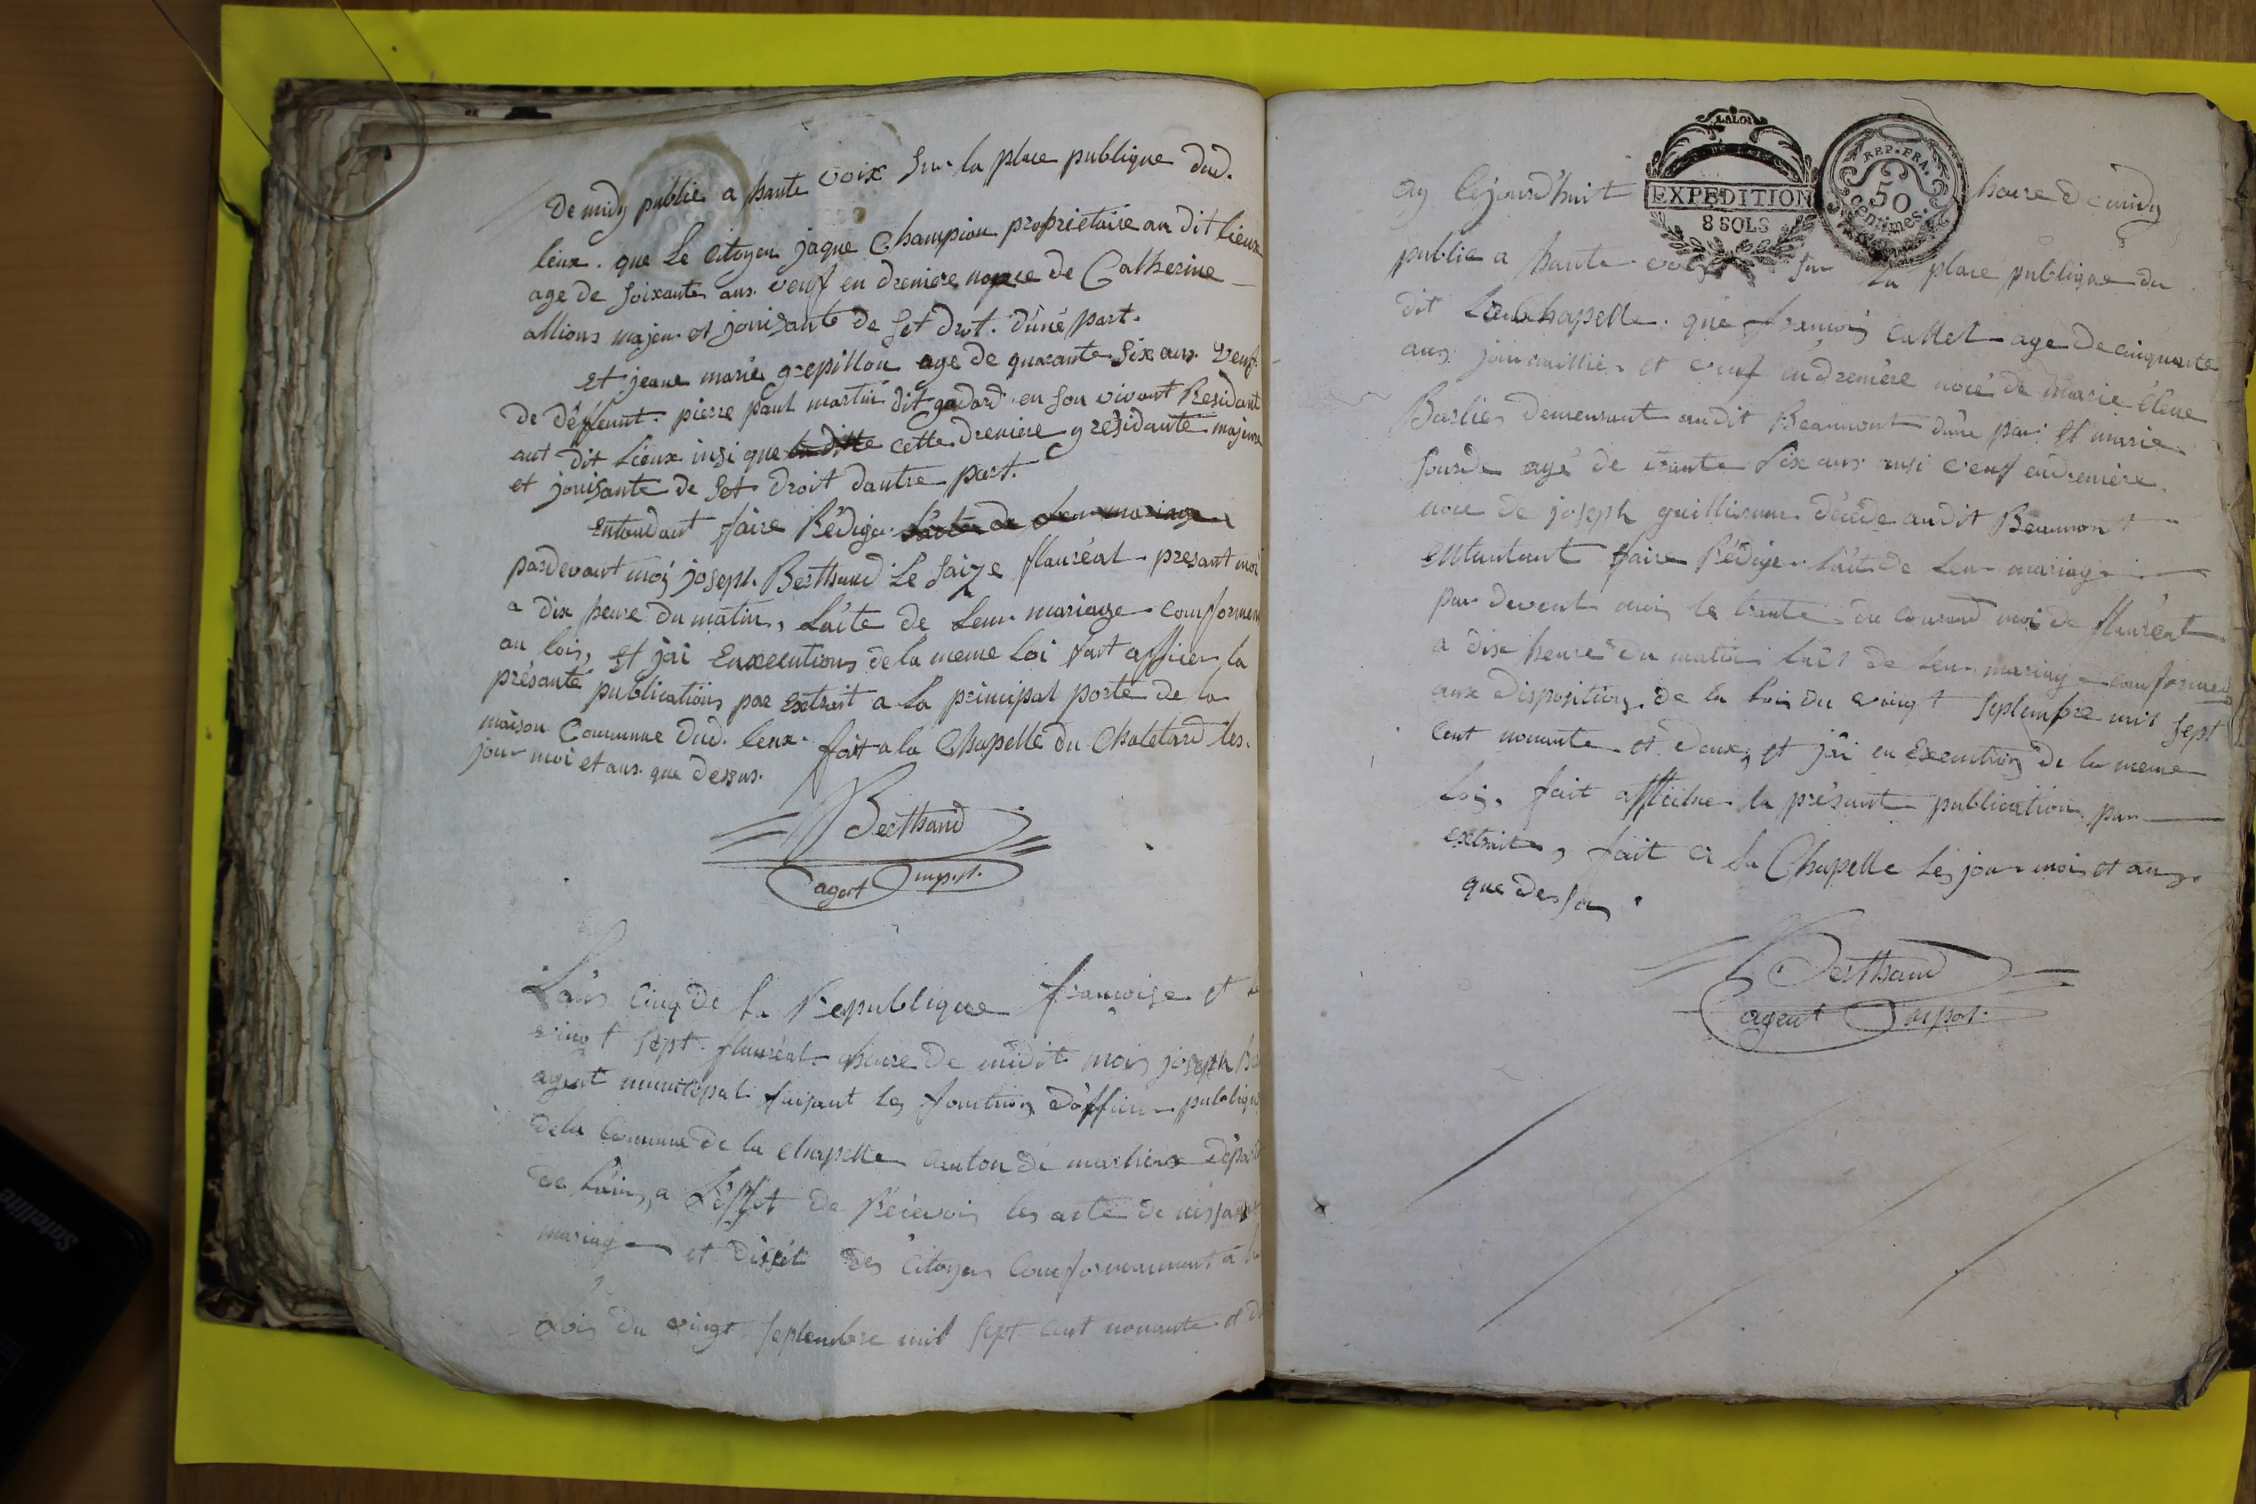 De midy publie a haute voix Sur la place publique dud.
lieux. que Le Citoyen jaque Champion proprietaire au dit lieux
age de soixante ans. veuf en dreniere nopce de Catherine
allions majeur et jouisante de set drot. d'une part.
Et jeane marie grepillon age de quarante six ans veuf
De déffeunt. pierre paul martin dit gadard en son vivant Residant
aut dit Lieux insi que la ditte cette dreniere y residante majeure
et jouisante de set droit dautre part.
Entendant faire Rédiger L'acte de leur mariage
pardevant moy joseph Berthaud Le saize flauréal presant moi
a dix heure du matin, Laite de Leur mariage conformem
au lois, et jai Enxecutions de la meme Loi fait afficer la
présante publications par Extrait a La principal porte de la
maison Commune dud. leux. fait a la Chapelle du Chatelard les
jour moi et ans que dessus.
Berthaud
agent mupal.
L'ans cinq de la Republique françoise et le
vingt sept flauréal heure de midit moy joseph Be
agent municipal faisant les fonctions d'officier publique
de la Commune de la Chapelle Canton de marlieux départ
de Lain, a L'effet de Récevoir les acte de naissance
mariage et dissét des Citoyens Conformement a la
Lois du vingt septembre mil sept cent nonante et d
ay Cejourd'huit heure de midy
publie a haute voix sur la place publique du
dit La Chapelle. que françois Callet age de cinquante
ans journaillier et veuf en dreniere noce de Marie élène
Barlier demeurant au dit Beaumont d'une par. Et marie
Sourde agé de trante six ans insi veuf en dreniere
noce de joseph guillierme décéde au dit Beaumont
Entantant faire Rédiger L'aite de Leur mariage
par devent moi le trante du courand moi de flauréal
a dix heure du matin L'aite de leur mariage conformem
aux disposition de la Lois du vingt septembre mil sept
cent nonante et deux, et jai en Execution de la meme
Lois, fait afficher la présante publication par
extraite, fait a La Chapelle les jour mois et ans
que dessus
Berthaud
agent mupal.
LA LOI
EXPEDITION
8 SOLS
REP. FRA.
50
centimes.
Satellite